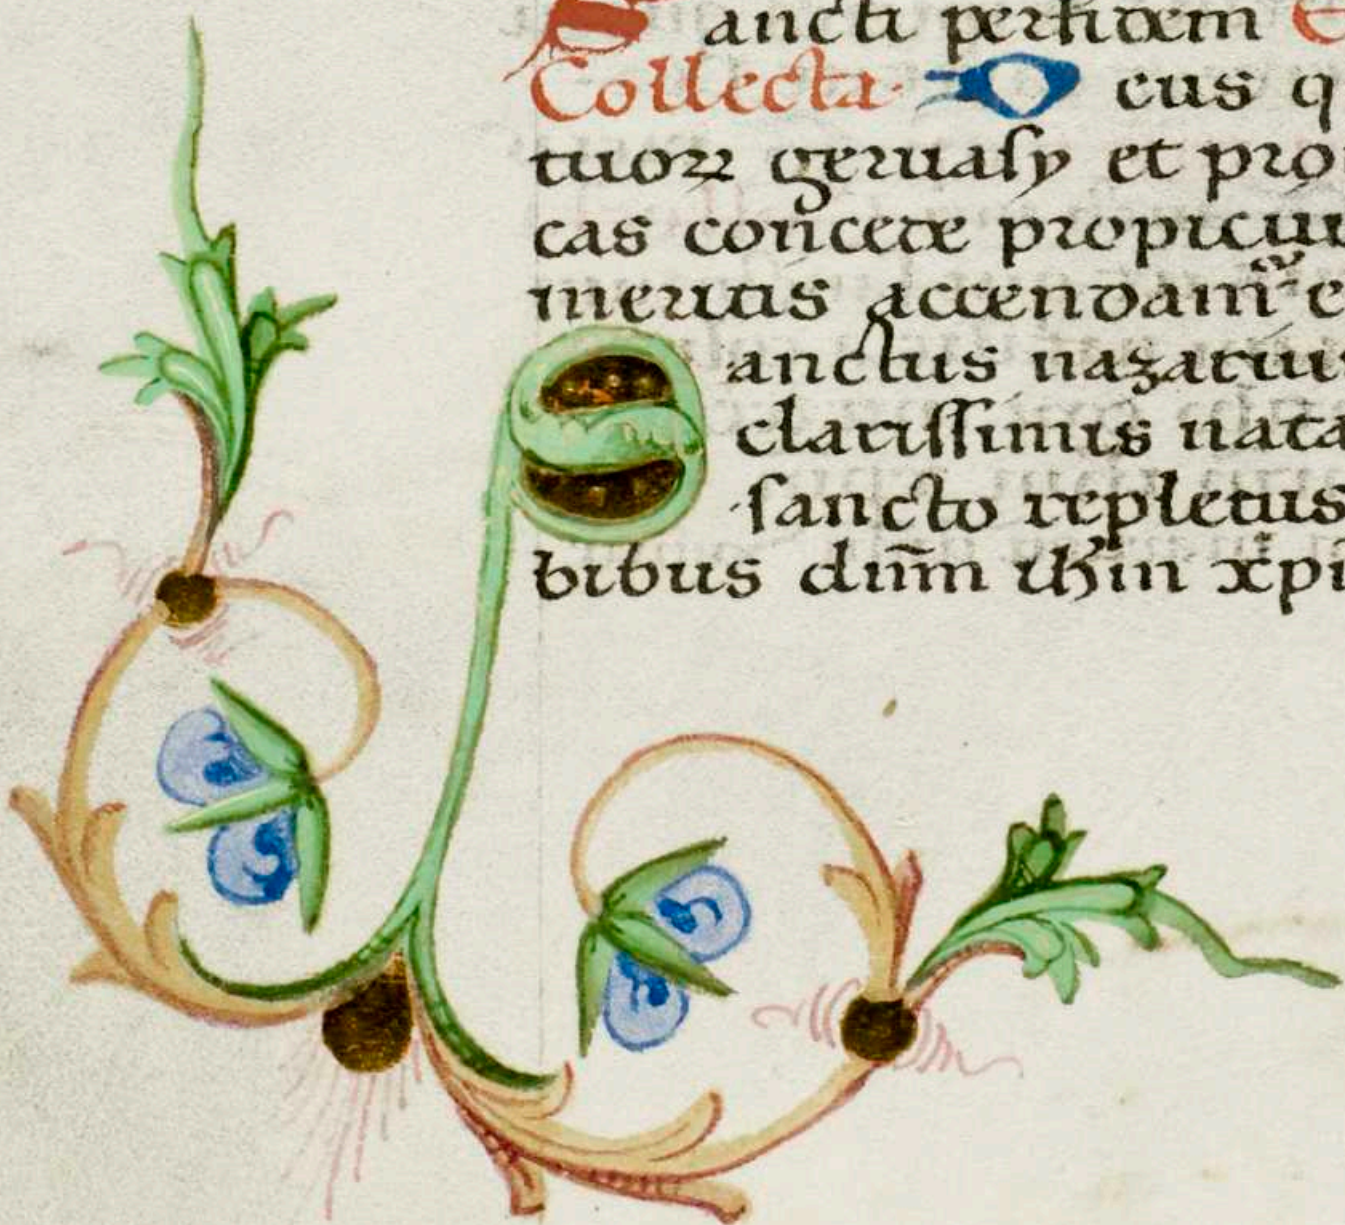 Sancti per fidem
Collecta. Deus q
tuoꝝ geruasÿ et pro
cas concede propiciu
meritis accendamᷣ e
Sanctus nazariu
clarissimis nata
sancto repletus
bibus dn̄m ihin xp̄i